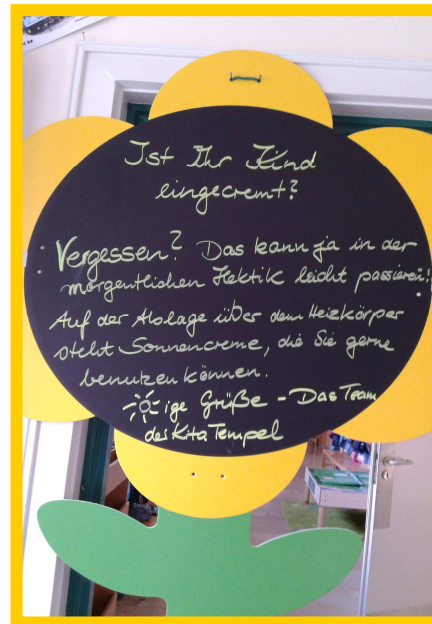 Ist Ihr Kind
eingecremt?
Vergessen? Das kann ja in der
morgentlichen Hektik leicht passieren!
Auf der Ablage über dem Heizkörper
steht Sonnencreme, die Sie gerne
benutzen können.
ige Grüße - Das Team
der Kita Tempel